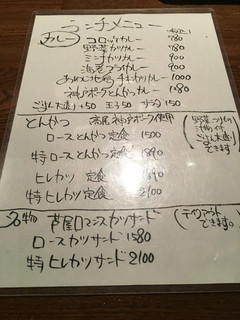 ランチメニュー
カレー
コロッケカレー 780
野菜カツカレー 780
ミンチカツカレー 900
海老フライカレー 900
チキンカツカレー 1000
神戸ポークとんかつカレー 1080
ごはん大盛り+50 玉子50 サラダ150
とんかつ 神戸ポーク使用
ロースとんかつ定食 1500
特ロースとんかつ定食 1890
ヒレカツ定食
特ヒレカツ定食 2100
名物 芦屋ロマンスカツサンド
ロースカツサンド 1580
特ヒレカツサンド 2100
(テイクアウト
できます。)